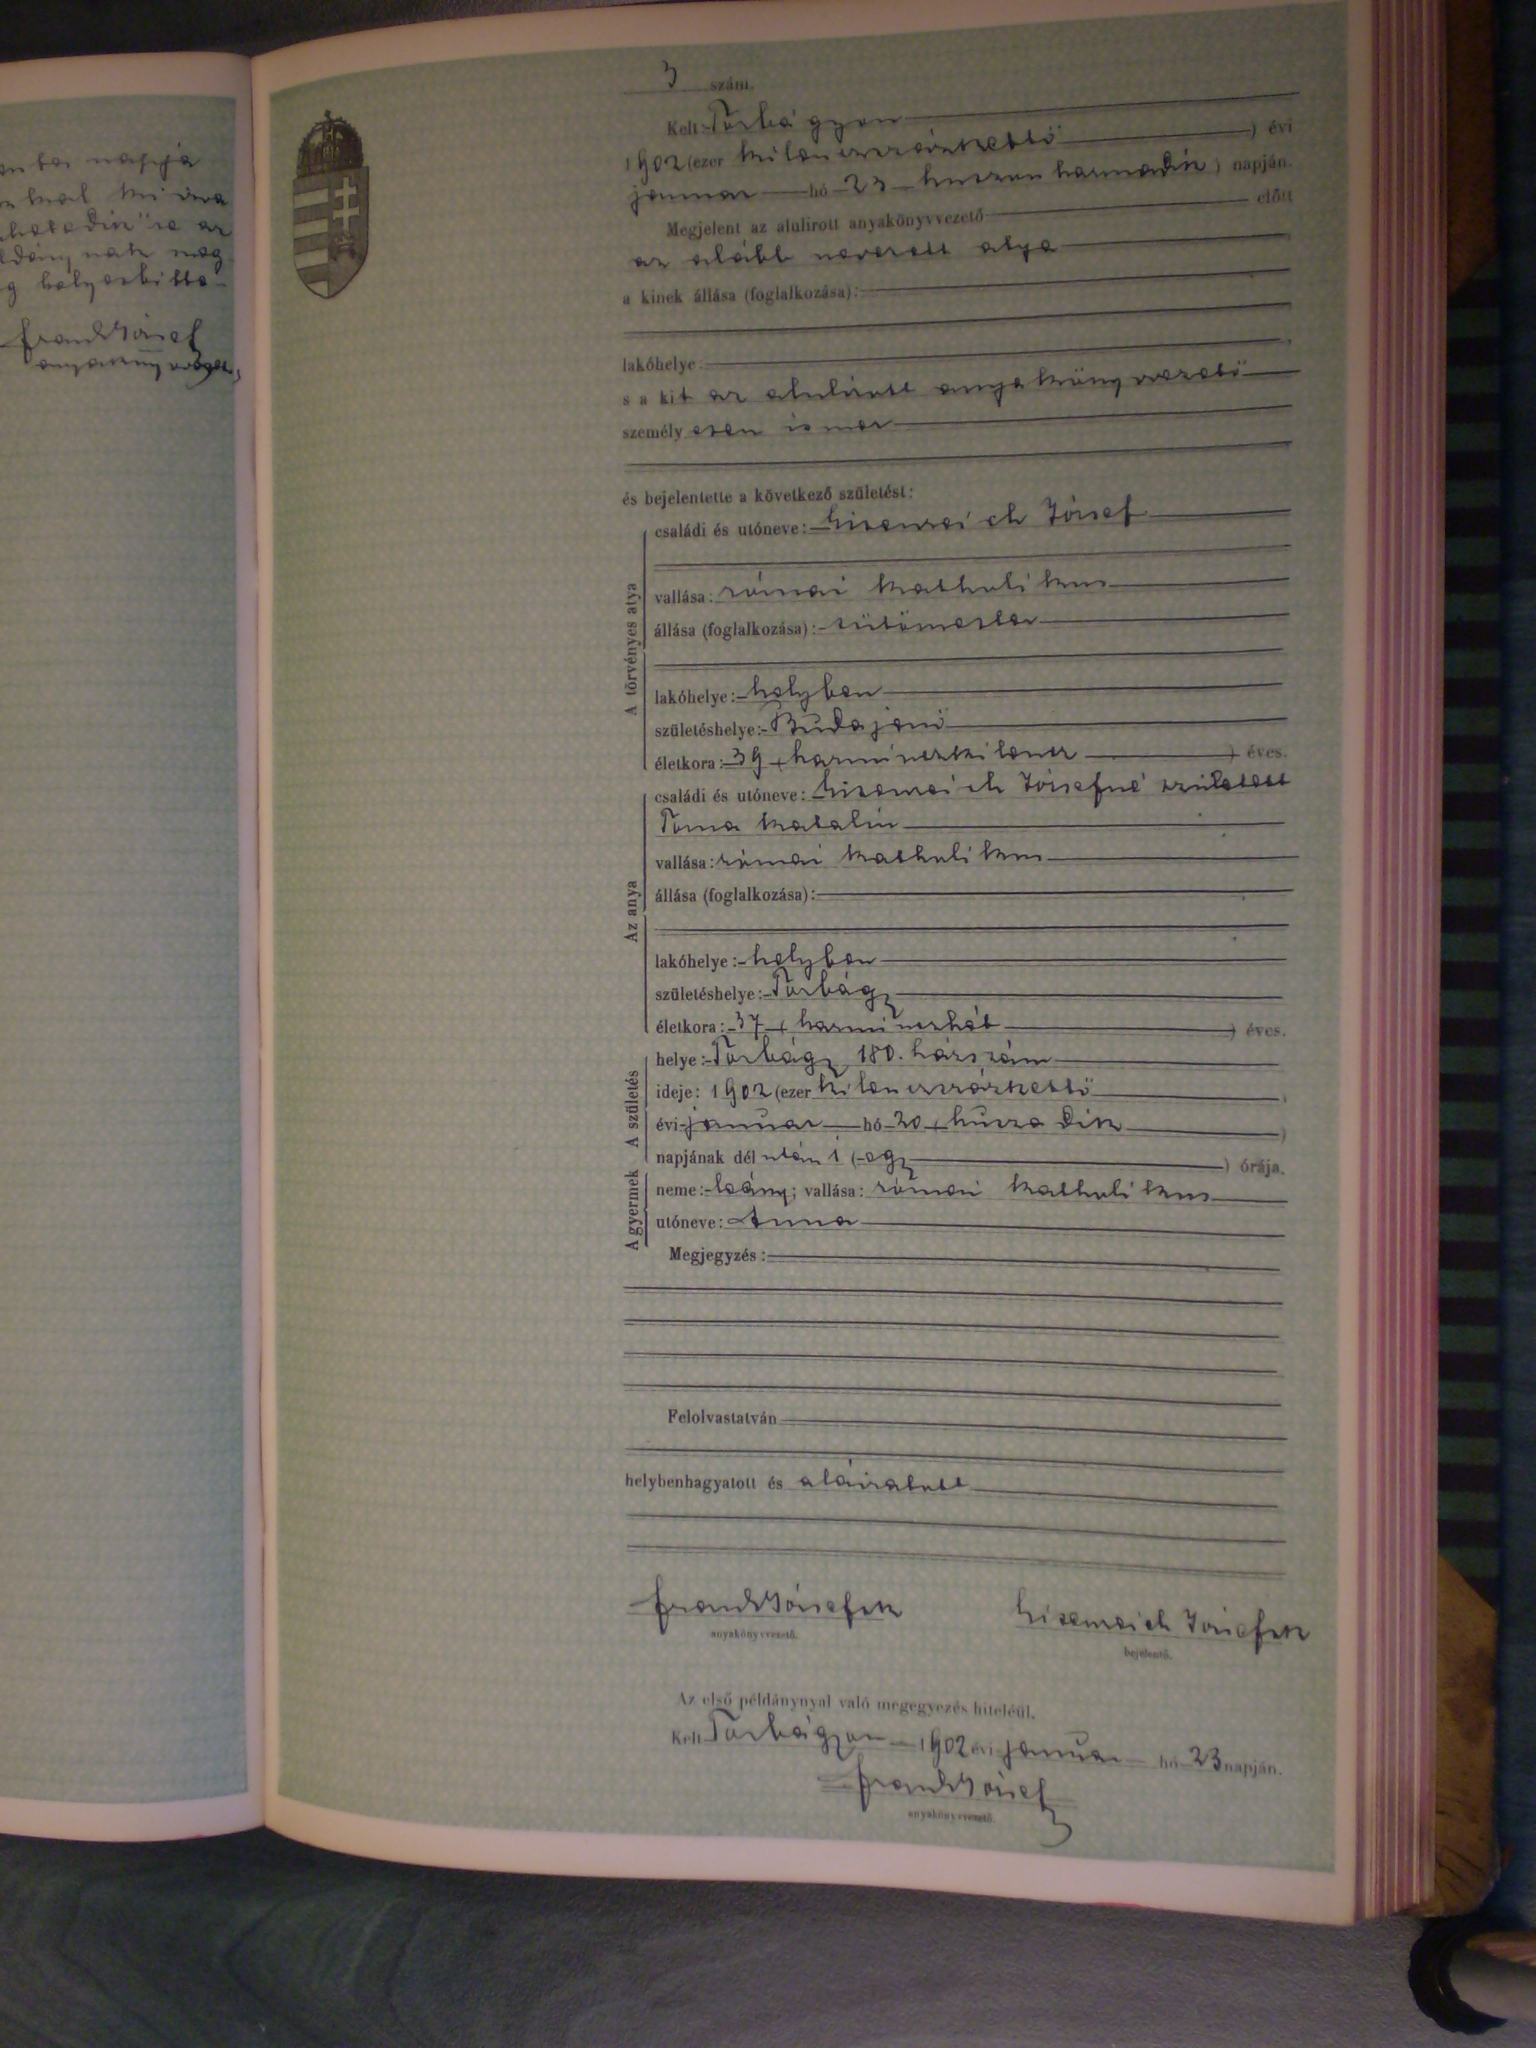 helyesbítte-
Frank József
3 szám.
Kelt Torbágyon
1902 (ezer kilenczszázkettő) évi
januar hó 23 huszonharmadik) napján.
Megjelent az alulirott anyakönyvvezető előtt
az alább nevezett atya
a kinek állása (foglalkozása):
lakóhelye
s a kit az alulirott anyakönyvvezető
személyesen ismer
és bejelentette a következő születést:
A törvényes atya
családi és utóneve: József
vallása: római katholikus
állása (foglalkozása): sütőmester
lakóhelye: helyben
születéshelye: Budajenő
életkora: 39 (harminczkilencz) éves.
Az anya
családi és utóneve: Józsefné született
Toma Katalin
vallása: római katholikus
állása (foglalkozása):
lakóhelye: helyben
születéshelye: Torbágy
életkora: 37 (harminczhét) éves.
A születés
helye: Torbágy 180. házszám
ideje: 1902 (ezer kilenczszázkettő
évi januar hó 20 (húszadik)
napjának dél után 1 (egy) órája.
A gyermek
neme: leány; vallása: római katholikus
utóneve: Anna
Megjegyzés:
Felolvastatván
helybenhagyatott és aláiratott
Frank József sk
József sk
anyakönyvvezető.
bejelentő.
Az első példánynyal való megegyezés hiteléül.
Kelt Torbágyon 1902 évi januar hó 23 napján.
Frank József
anyakönyvvezető.